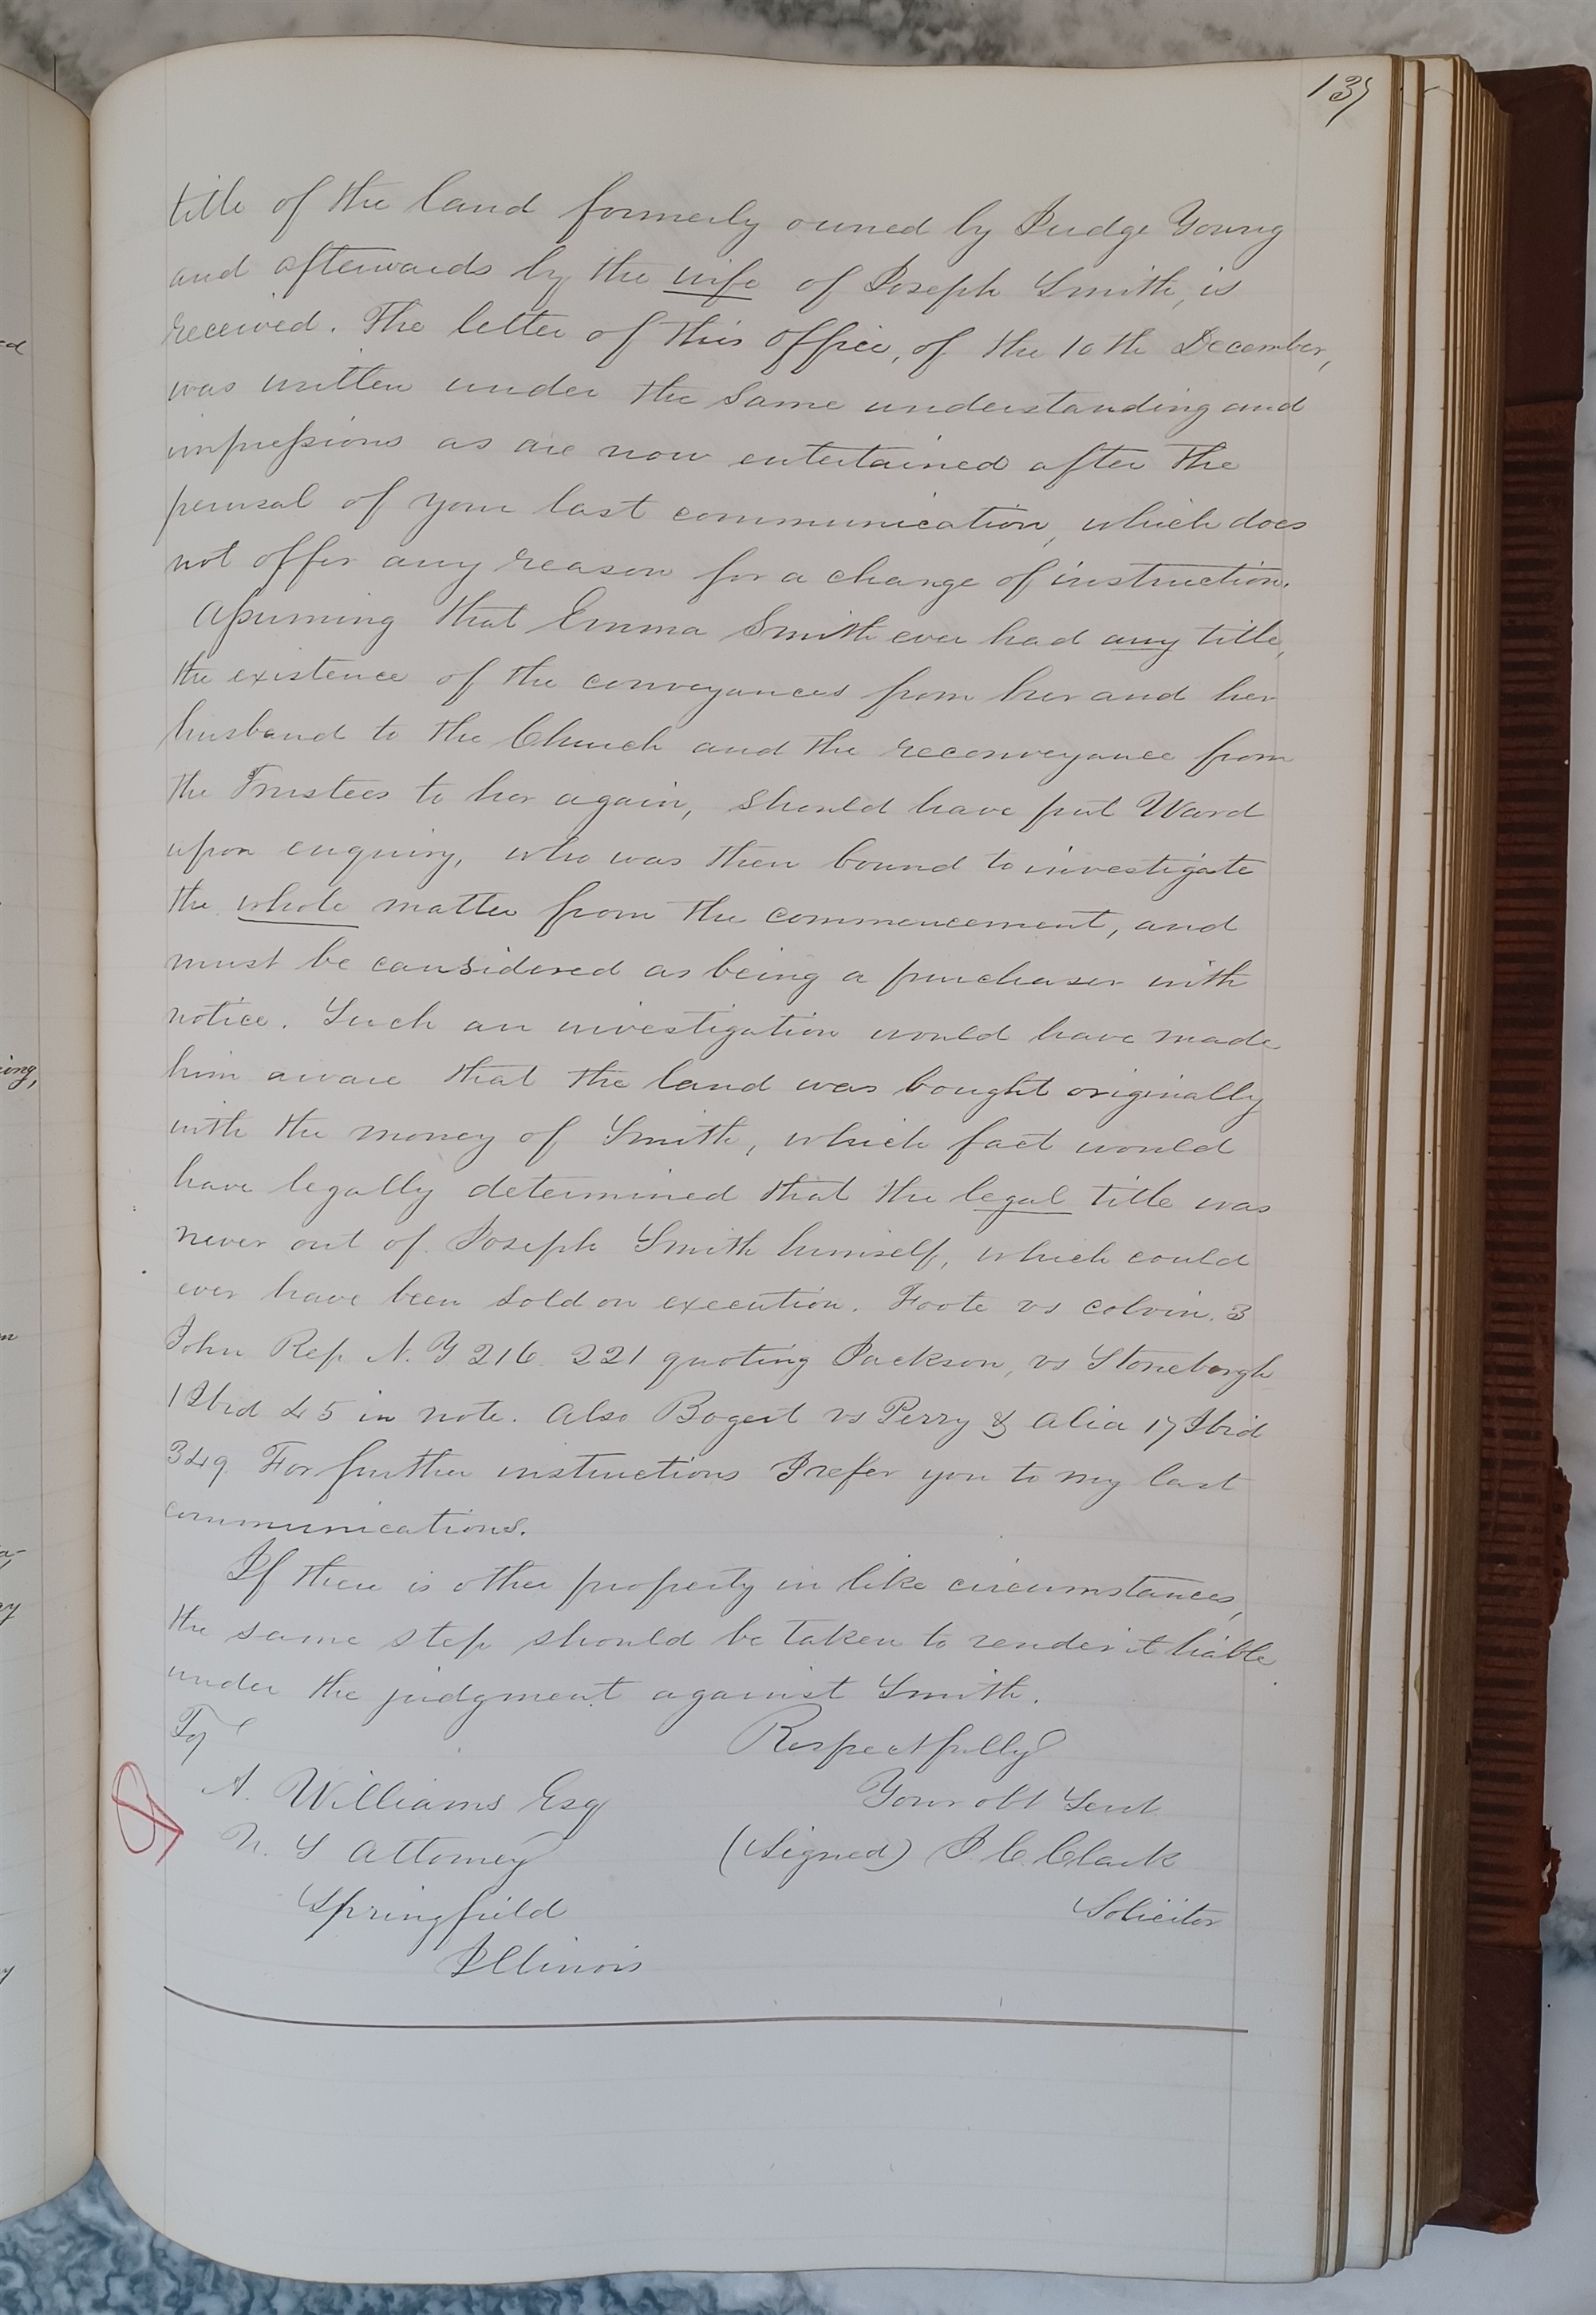 137
title of the land formerly owned by Judge Young
and afterwards by the wife of Joseph Smith, is
received. The letter of this office, of the 10th December,
was written under the same understanding and
impressions as are now entertained after the
perusal of your last communication, which does
not offer any reason for a change of instruction.
Assuming that Emma Smith ever had any title,
the existence of the conveyances from her and her
husband to the Church and the reconveyance from
the Trustees to her again, should have put Ward
upon enquiry, who was then bound to investigate
the whole matter from the commencement, and
must be considered as being a purchaser with
notice. Such an investigation would have made
him aware that the land was bought originally
with the money of Smith, which fact would
have legally determined that the legal title was
never out of Joseph Smith himself, which could
ever have been sold on execution. Foote vs Colvin. 3
John Rep N. Y 216. 221 quoting Jackson, vs Stonebergh
1 Ibid 45 in note. Also Bogert vs Perry & alia 17 Ibid
349. For further instructions I refer you to my last
communications.
If there is other property in like circumstances,
the same step should be taken to render it liable
under the judgment against Smith.
To Respectfully
A. Williams Esq Your obt Servt
U. S Attorney (Signed) J. C. Clark
Springfield Solicitor
Illinois
ed
ing,